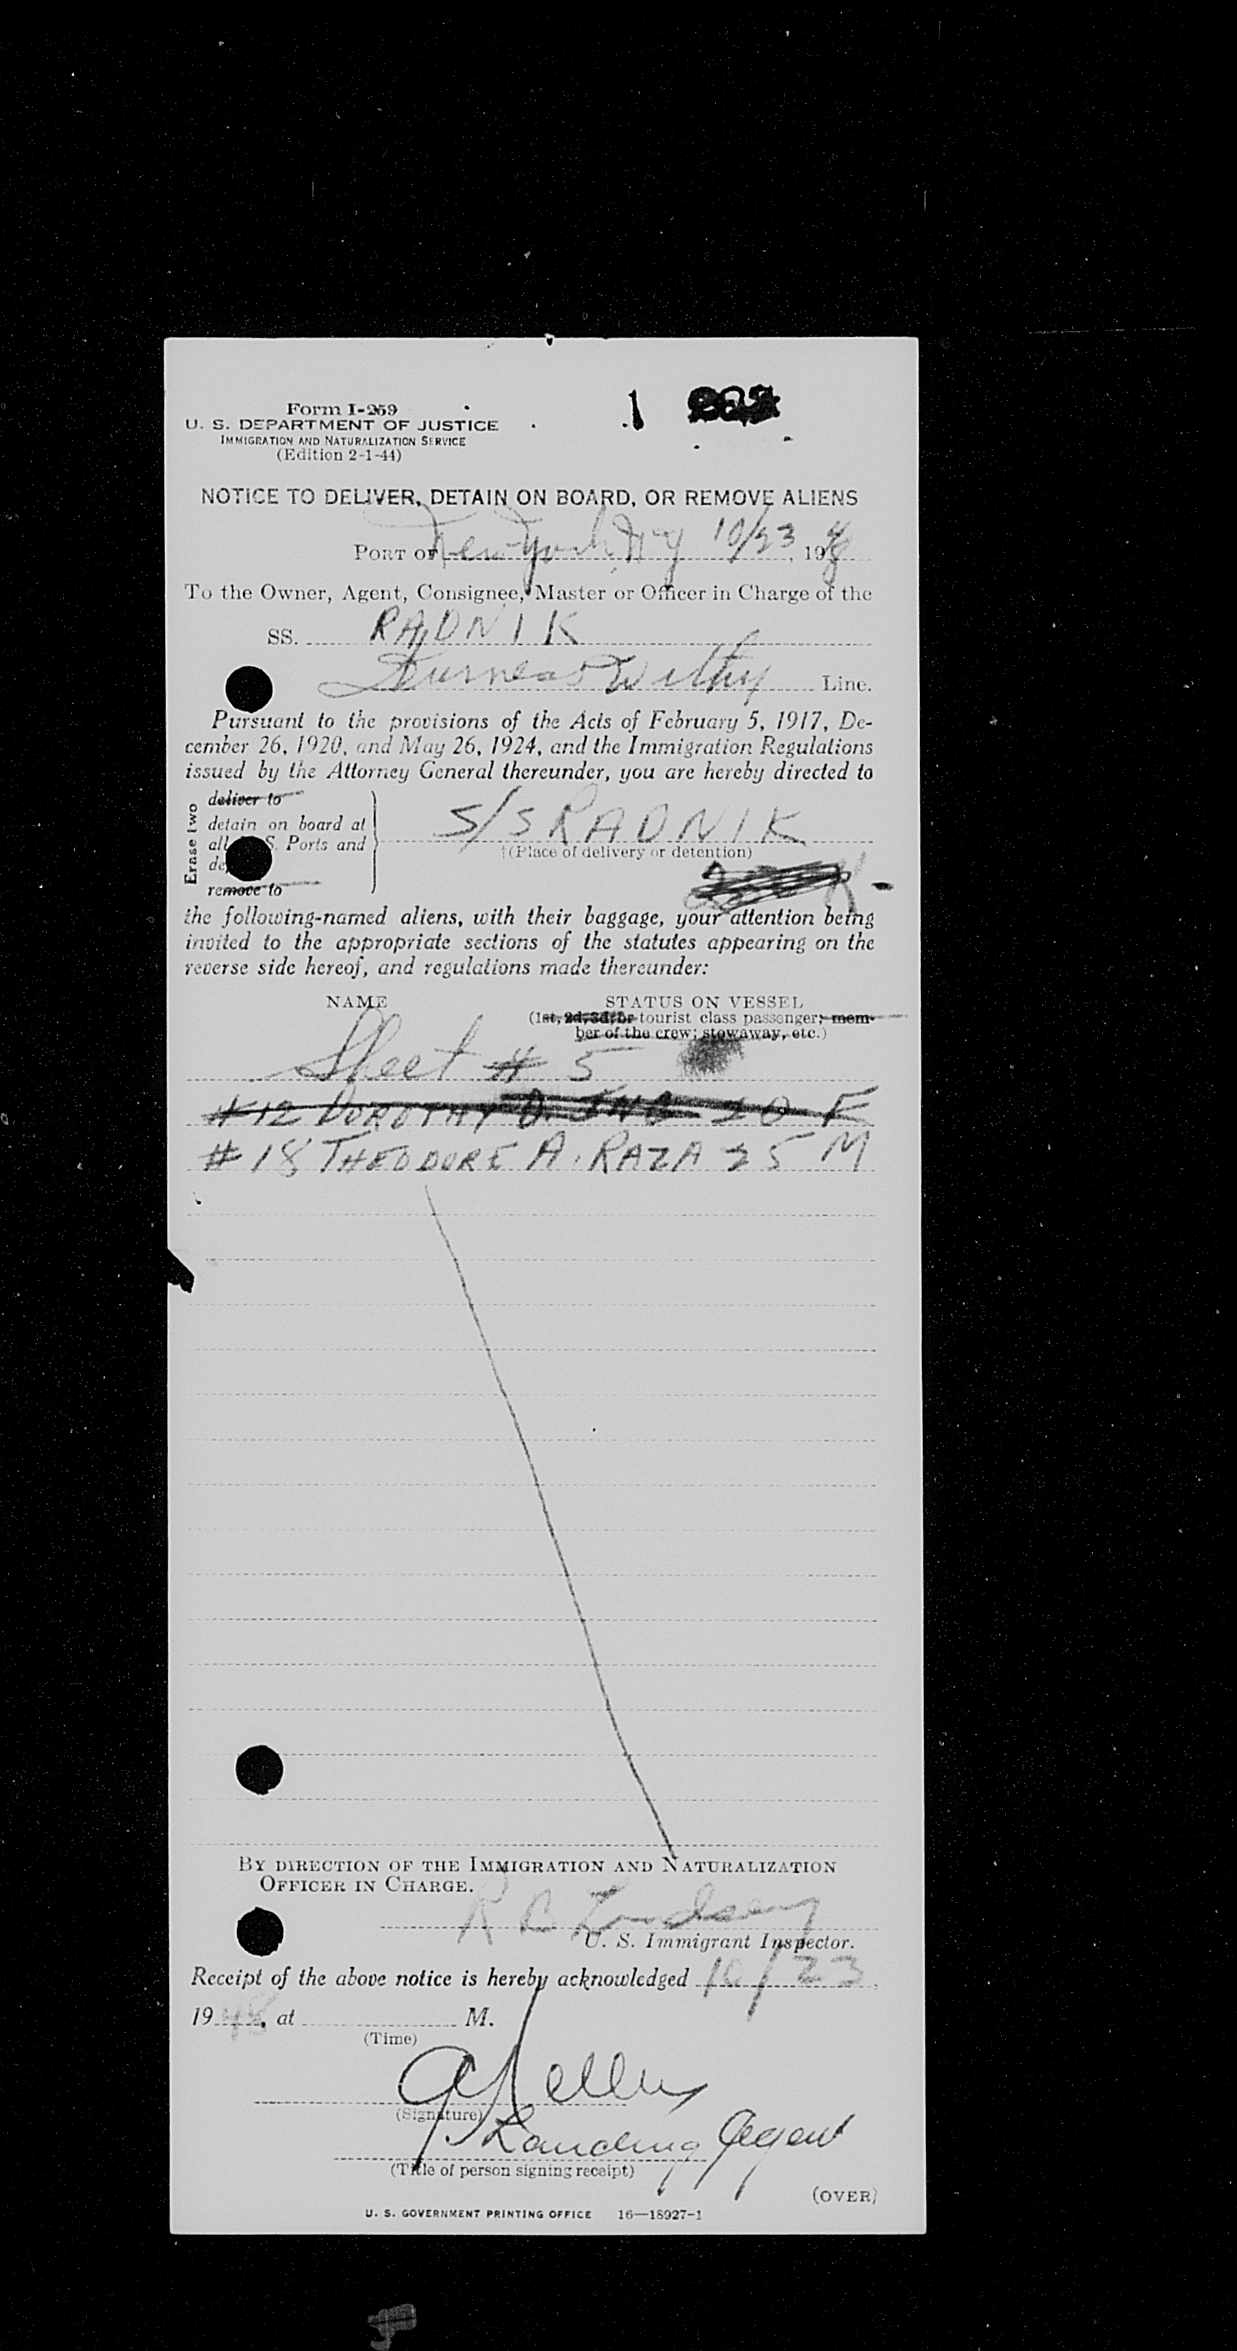 Form I-259
U. S. DEPARTMENT OF JUSTICE
IMMIGRATION AND NATURALIZATION SERVICE
(Edition 2-1-44)
1
NOTICE TO DELIVER, DETAIN ON BOARD, OR REMOVE ALIENS
PORT OF New York, NY 10/23, 1948
To the Owner, Agent, Consignee, Master or Officer in Charge of the
SS. RADNIK
Furness Withy Line.
Pursuant to the provisions of the Acts of February 5, 1917, De-
cember 26, 1920, and May 26, 1924, and the Immigration Regulations
issued by the Attorney General thereunder, you are hereby directed to
Erase two
deliver to
detain on board at
all S. Ports and
de
remove to
S/S RADNIK
†(Place of delivery or detention)
the following-named aliens, with their baggage, your attention being
invited to the appropriate sections of the statutes appearing on the
reverse side hereof, and regulations made thereunder:
NAME STATUS ON VESSEL
(1st, 2d, 3d, or tourist class passenger; mem-
ber of the crew; stowaway, etc.)
Sheet # 5
#12 DOROTHY D. 20 F
#18 THEODORE A. RAZA 25 M
BY DIRECTION OF THE IMMIGRATION AND NATURALIZATION
OFFICER IN CHARGE.
R B Lindsey
U. S. Immigrant Inspector.
Receipt of the above notice is hereby acknowledged 10/23,
1948, at M.
(Time)
(Signature)
Landing Agent
(Title of person signing receipt)
(OVER)
U. S. GOVERNMENT PRINTING OFFICE 16—18927-1